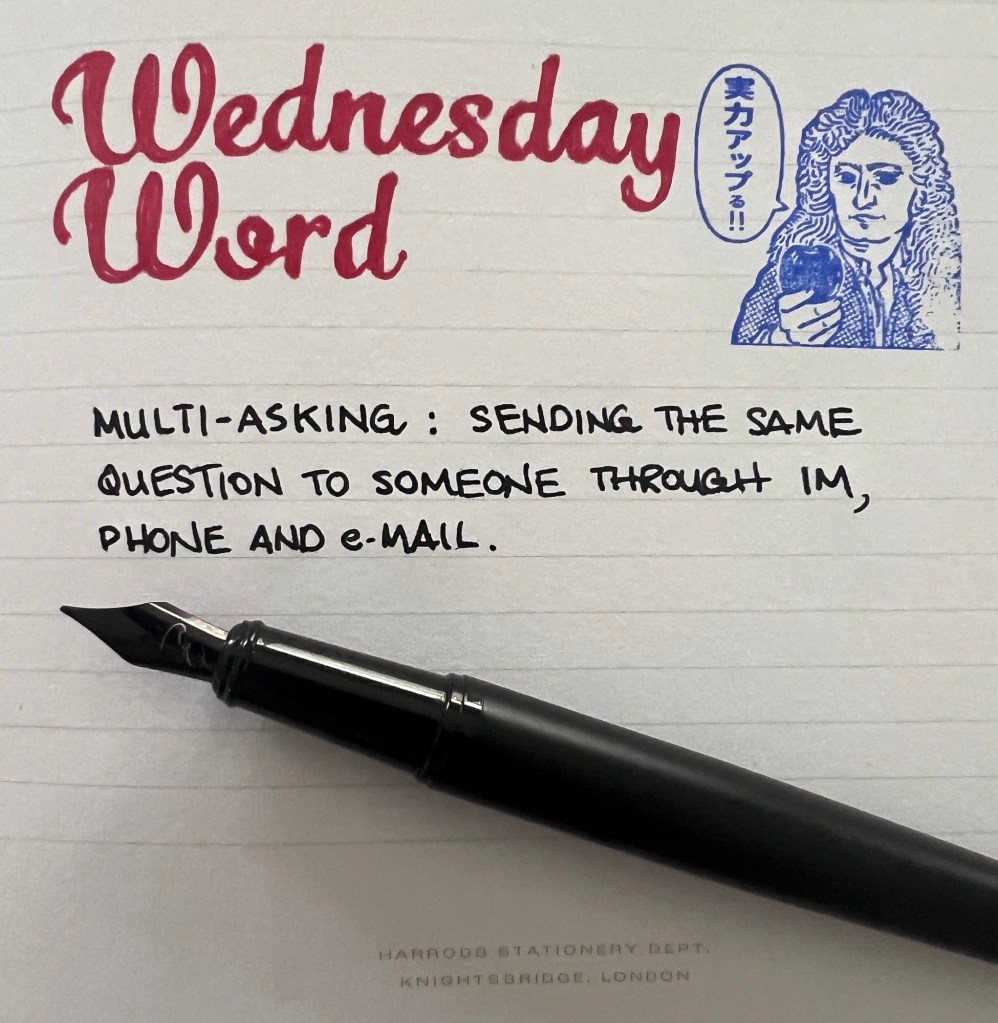 Wednesday
Word
実力アップる!!
MULTI-ASKING : SENDING THE SAME
QUESTION TO SOMEONE THROUGH IM,
PHONE AND e-MAIL.
HARRODS STATIONERY DEPT.
KNIGHTSBRIDGE, LONDON